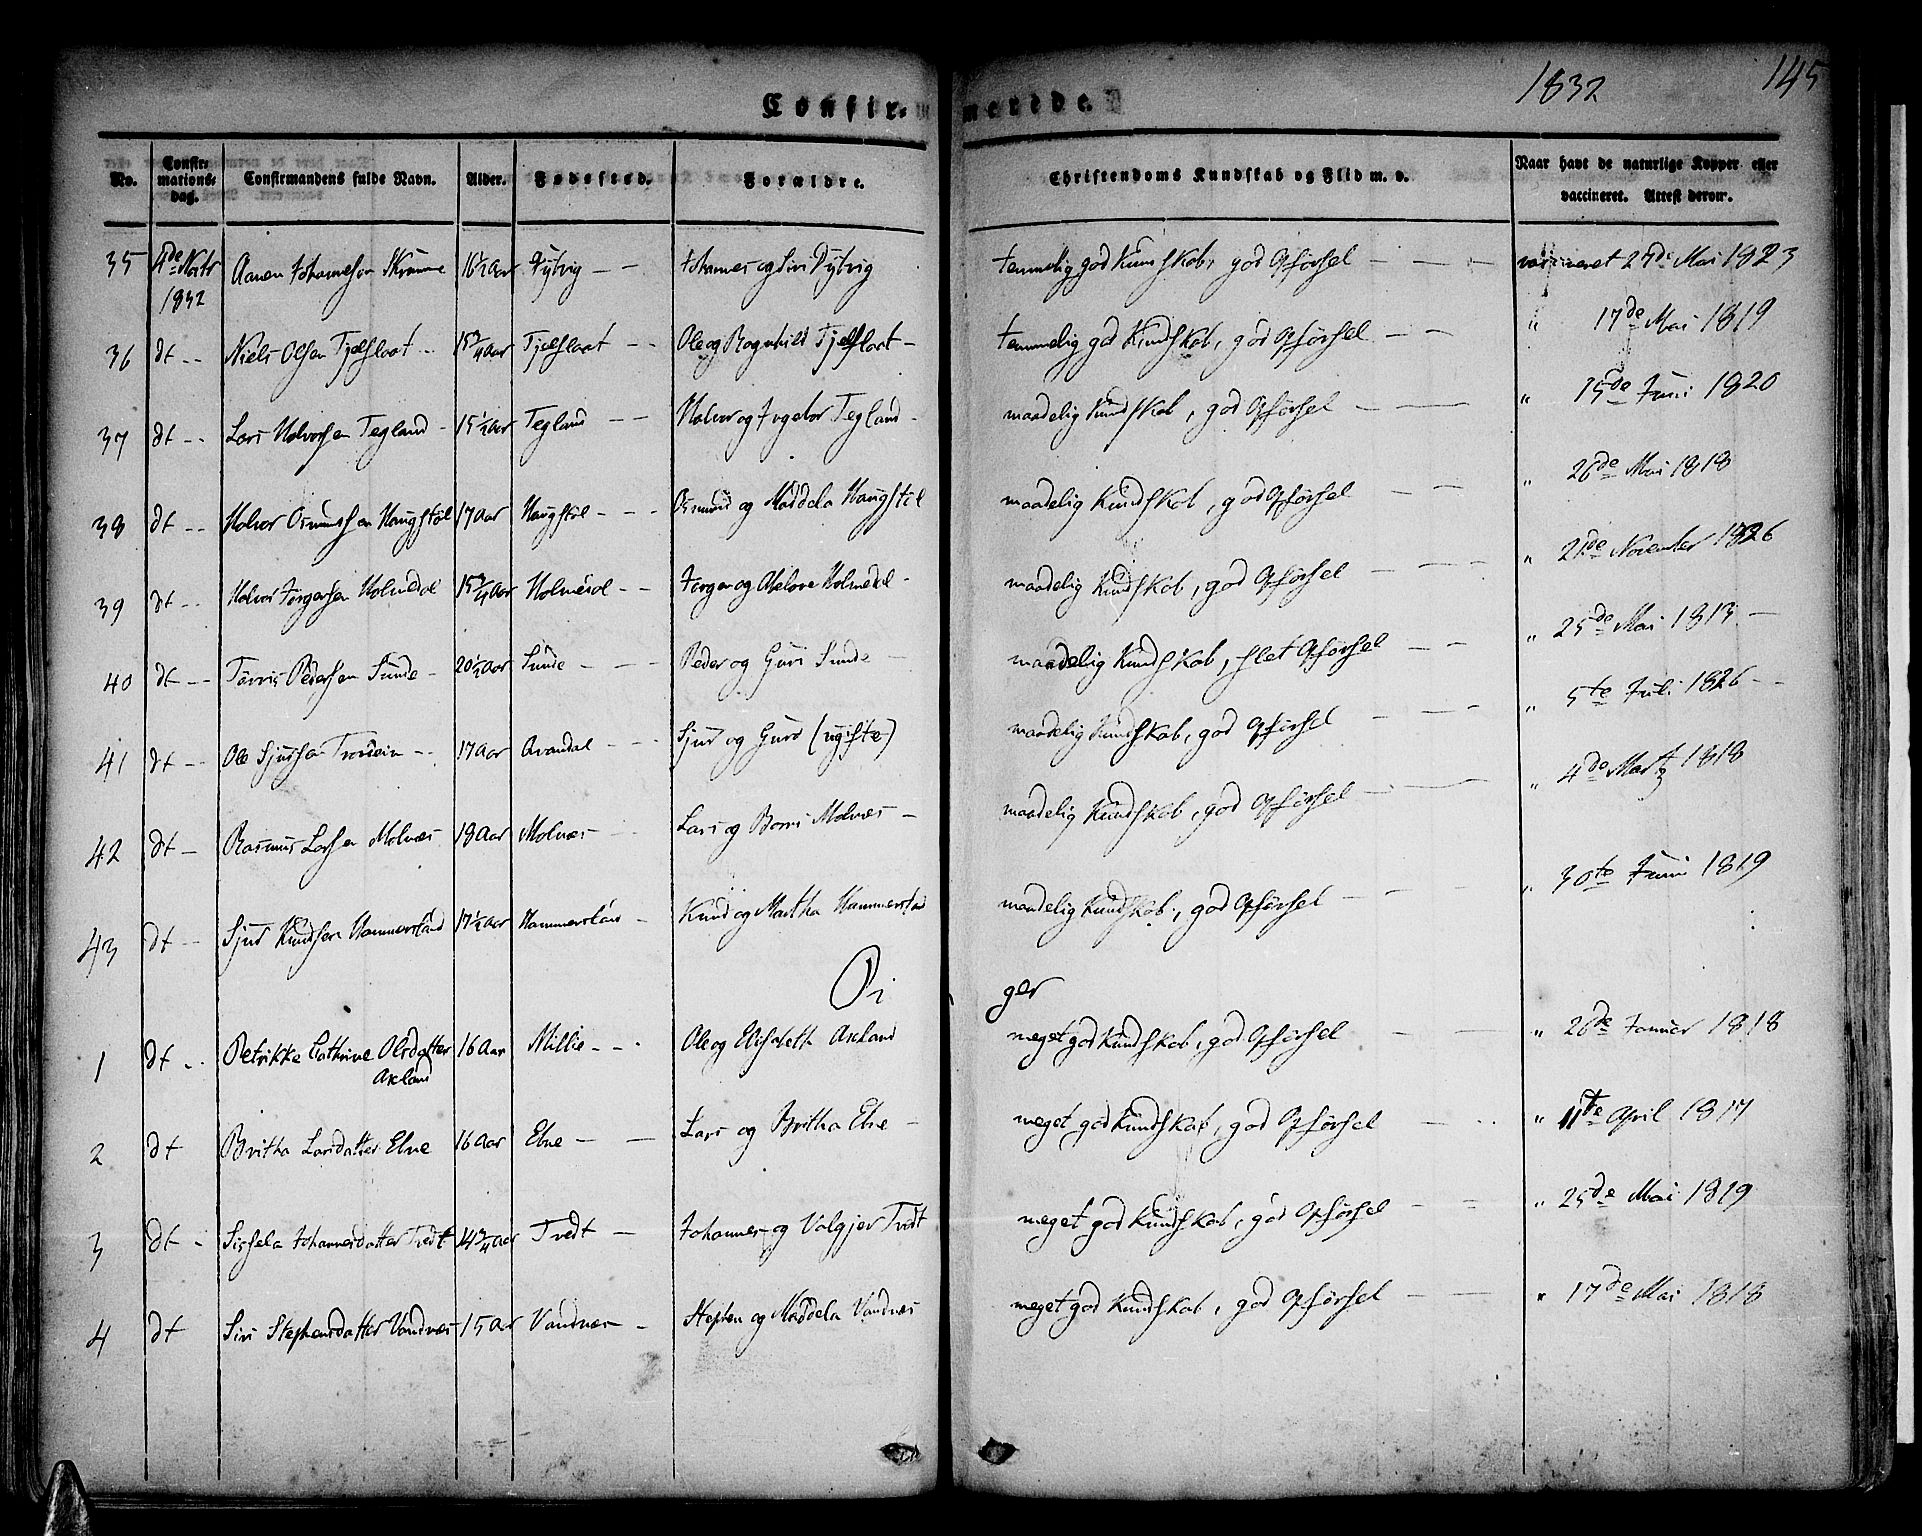 1832
145
Confir-
merede.
No.
Confir-
mations-
dag.
Confirmandens fulde Navn.
Alder.
Fødested.
Forældre.
Christendoms Kundskab og Flid m. v.
Naar havt de naturlige Kopper eller
vaccineret. Attest derom.
35 4de 1832 Aanen Johannesen 16½ Aar Dÿbvig – – Johannes og Siri Dÿbvig temmelig god Kundskab, god Opførsel – – – vaccineret de Mai 1823
36 dt – – Niels Olsen Tjelfloat – – 15¾ Aar Tjelfloat – – Ole og Ragnhild Tjelfloat – temmelig god Kundskab, god Opførsel – – " 17de Mai 1819
37 dt – – Lars Halvorsen Tegland – 15½ Aar Tegland – – Halvor og Ingebor Tegland – maadelig Kundskab, god Opførsel – – " 15de Juni 1820
38 dt – – Halvor Osmundsen Haugstöl 17 Aar Haugstöl – – – Osmund og Maddela Haugstöl maadelig Kundskab, god Opførsel – – " 26de Mai 1818
39 dt – – Halvor Jörgensen Holmedal 15¾ Aar Holmedal – – Jörgen og Holmedal – maadelig Kundskab, god Opførsel – – – " 21de November 1826
40 dt – – Pedersen Sunde – 20½ Aar Sunde – – – Peder og Guri Sunde – maadelig Kundskab, slet Opførsel – – " 25de Mai 1813 –
41 dt – – Ole Sjursen 17 Aar – – – Sjur og Guro (ugifte) maadelig Kundskab, god Opførsel – – – " 5te Juli 1826 – –
42 dt – Rasmus Larsen Molnæs 18 Aar Molnæs – – Lars og Molnæs – maadelig Kundskab, god Opførsel – – – " 4de Martz 1818
43 dt – – Sjur Knudsen Hammersland 17½ Aar Hammersland – Knud og Martha Hammersland maadelig Kundskab, god Opførsel – – – " 30te Juni 1819
Pi
ger
1 dt – – Petrikke Cathrine Olsdatter Axland 16 Aar Millie – – – Ole og Elisabeth Axland meget god Kundskab, god Opførsel – – " 26de Januar 1818
2 dt Britha Larsdatter Ebne 16 Aar Ebne – – Lars og Britha Ebne – meget god Kundskab, god Opførsel – – " 11te April 1817
3 dt – Sissela Johannesdatter Tvedt 14¾ Aar Tvedt – Johannes og Valgjer Tvedt meget god Kundskab, god Opførsel – – " 25de Mai 1819
4 dt Siri Stephensdatter Vandnæs 15 Aar Vandnæs – Stephen og Maddela Vandnæs meget god Kundskab, god Opførsel – – " 17de Mai 1818